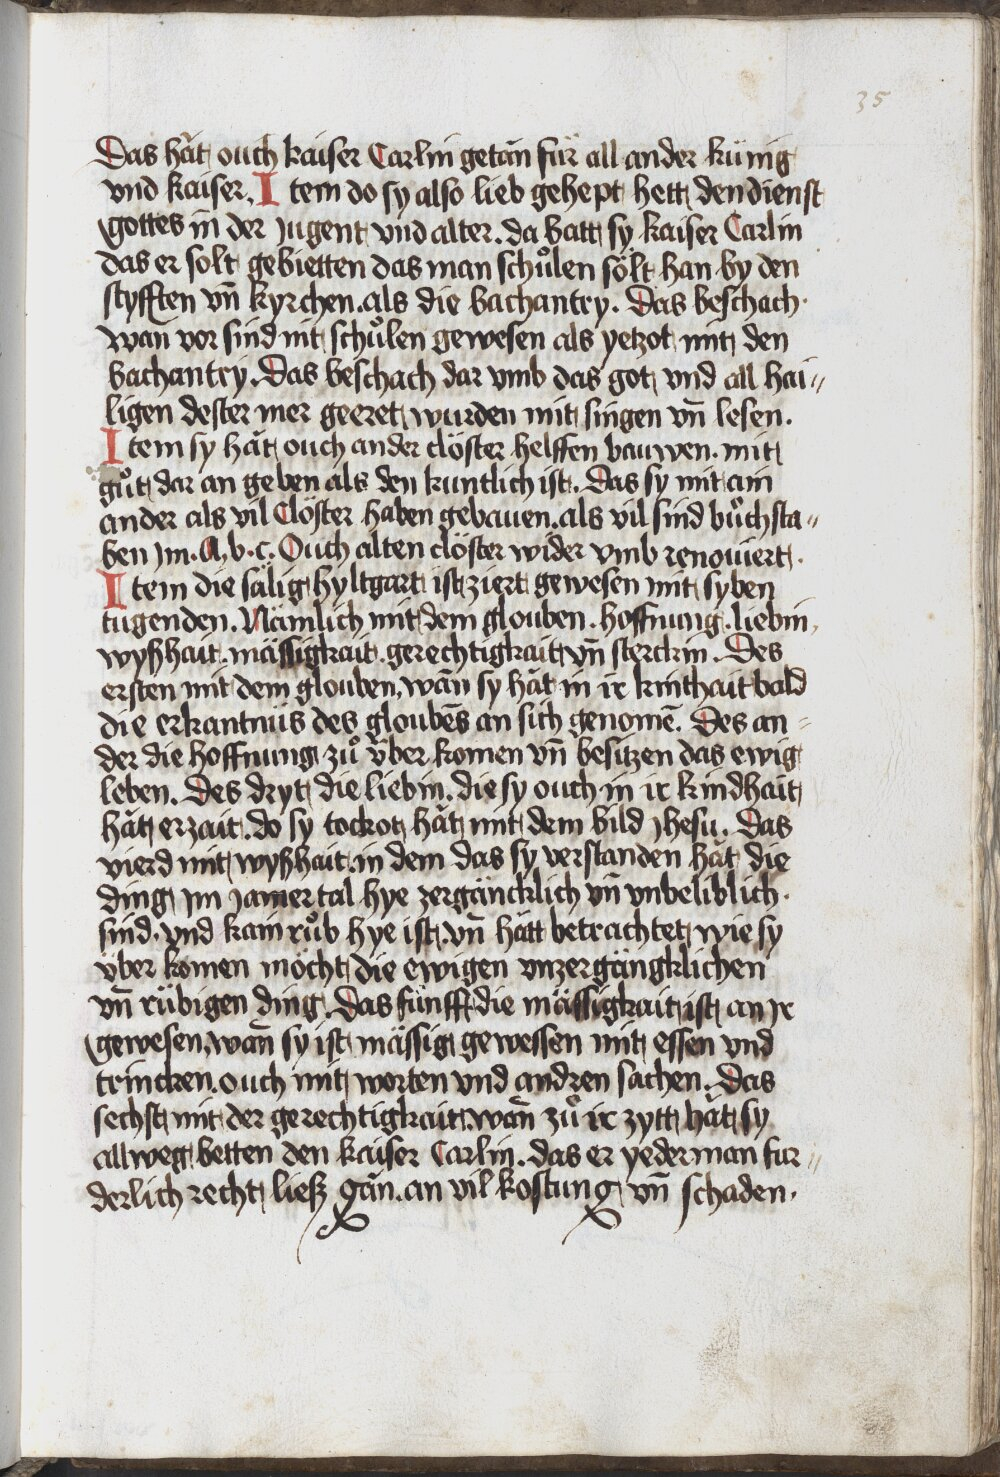 35
Das hăt ouch kaiser Carlin getăn für all ander künig
vnd kaiser. Item do sy also lieb gehept hett den dienst
gottes in der jugent vnd alter. da batt sy kaiser Carlin
das er sölt gebietten das man schůlen sölt han by den
styfften vn̄ kyrchen. als die bachantry. Das beschach.
wan vor sind nit schůlen gewesen als yetzot mit den
bachantry. Das beschach dar vmb das got vnd all hai„
ligen dester mer geeret wurden mit singen vn̄ lesen.
Item sy hăt ouch ander clöster helffen bauwen. mit
gůt dar an geben als den kuntlich ist. Das sy mit ain
ander als vil Clöster haben gebauen. als vil sind bůchsta„
ben jm. A. b. c. Ouch alten clöster wider vmb renouiert.
Item die sälig hyltgart ist ziert gewesen mit syben
tugenden. Nämlich mit dem glouben. hoffnung. liebin,
wyßhait. mässigkait. gerechtigkait vn̄ sterckin. Des
ersten mit dem glouben, wān sy hăt in ir kinthait bald
die erkantnüs des gloubēs an sich genomē. Des an„
der die hoffnung zů v̈ber komen vn̄ besitzen das ewig
leben. Des dryt die liebin. die sy ouch in ir kindhait
hăt erzait. do sy tockot hăt mit dem bild jhesu. Das
vierd mit wyßhait. in dem das sy verstanden hăt die
ding jm jamertal hye zergäncklich vn̄ vnbeliblich.
sind. vnd kain růb hye ist. vn̄ hătt betrachtet wie sy
v̈ber komen möcht die ewigen vnzergängklichen
vn̄ rübigen ding. Das fünfft die mässigkait ist an jr
gewesen, wān sy ist mässig gewessen mit essen vnd
trincken. ouch mit worten vnd andren sachen. Das
sechst mit der gerechtigkait. wān zů ir zytt hăt sy
allweg betten den kaiser Carlin. das er yederman für„
derlich recht ließ găn. an vil kostung vn̄ schaden.